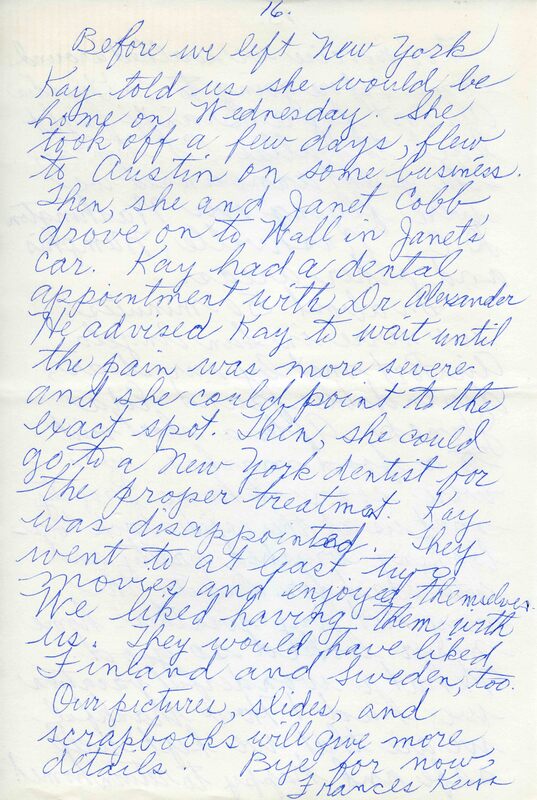 16.
Before we left New York
Kay told us she would be
home on Wednesday. She
took off a few days, flew
to Austin on some business.
Then, she and Janet Cobb
drove on to Wall in Janet's
car. Kay had a dental
appointment with Dr Alexander
He advised Kay to wait until
the pain was more severe
and she could point to the
exact spot. Then, she could
go to a New York dentist for
the proper treatment. Kay
was disappointed. They
went to at least two
movies and enjoyed themselves.
We liked having them with
us. They would have liked
Finland and Sweden, too.
Our pictures, slides, and
scrapbooks will give more
details. Bye for now,
Frances